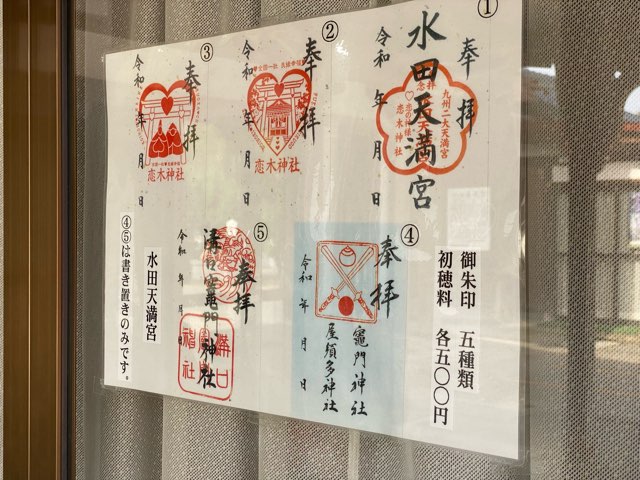 ①
奉拝
水田天満宮
九州二大天満宮
恋木神社
令和 年 月 日
②
奉拝
恋木神社
令和 年 月 日
③
奉拝
恋木神社
令和 年 月 日
御朱印 五種類
初穂料 各五〇〇円
④
奉拝
竈門神社
屋須多神社
令和 年 月 日
⑤
奉拝
溝口竈門神社
令和 年 月 日
水田天満宮
④⑤は書き置きのみです。